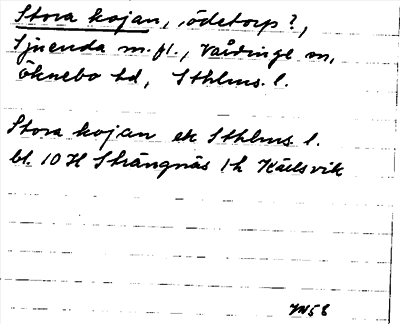 Stora kojan, ödetorp?,
Sjuenda m.fl., Vårdinge sn,
Öknebo hd, Sthlms. l.
Stora kojan ek Sthlms l.
bl. 10 H Strängnäs 1 h Karlsvik